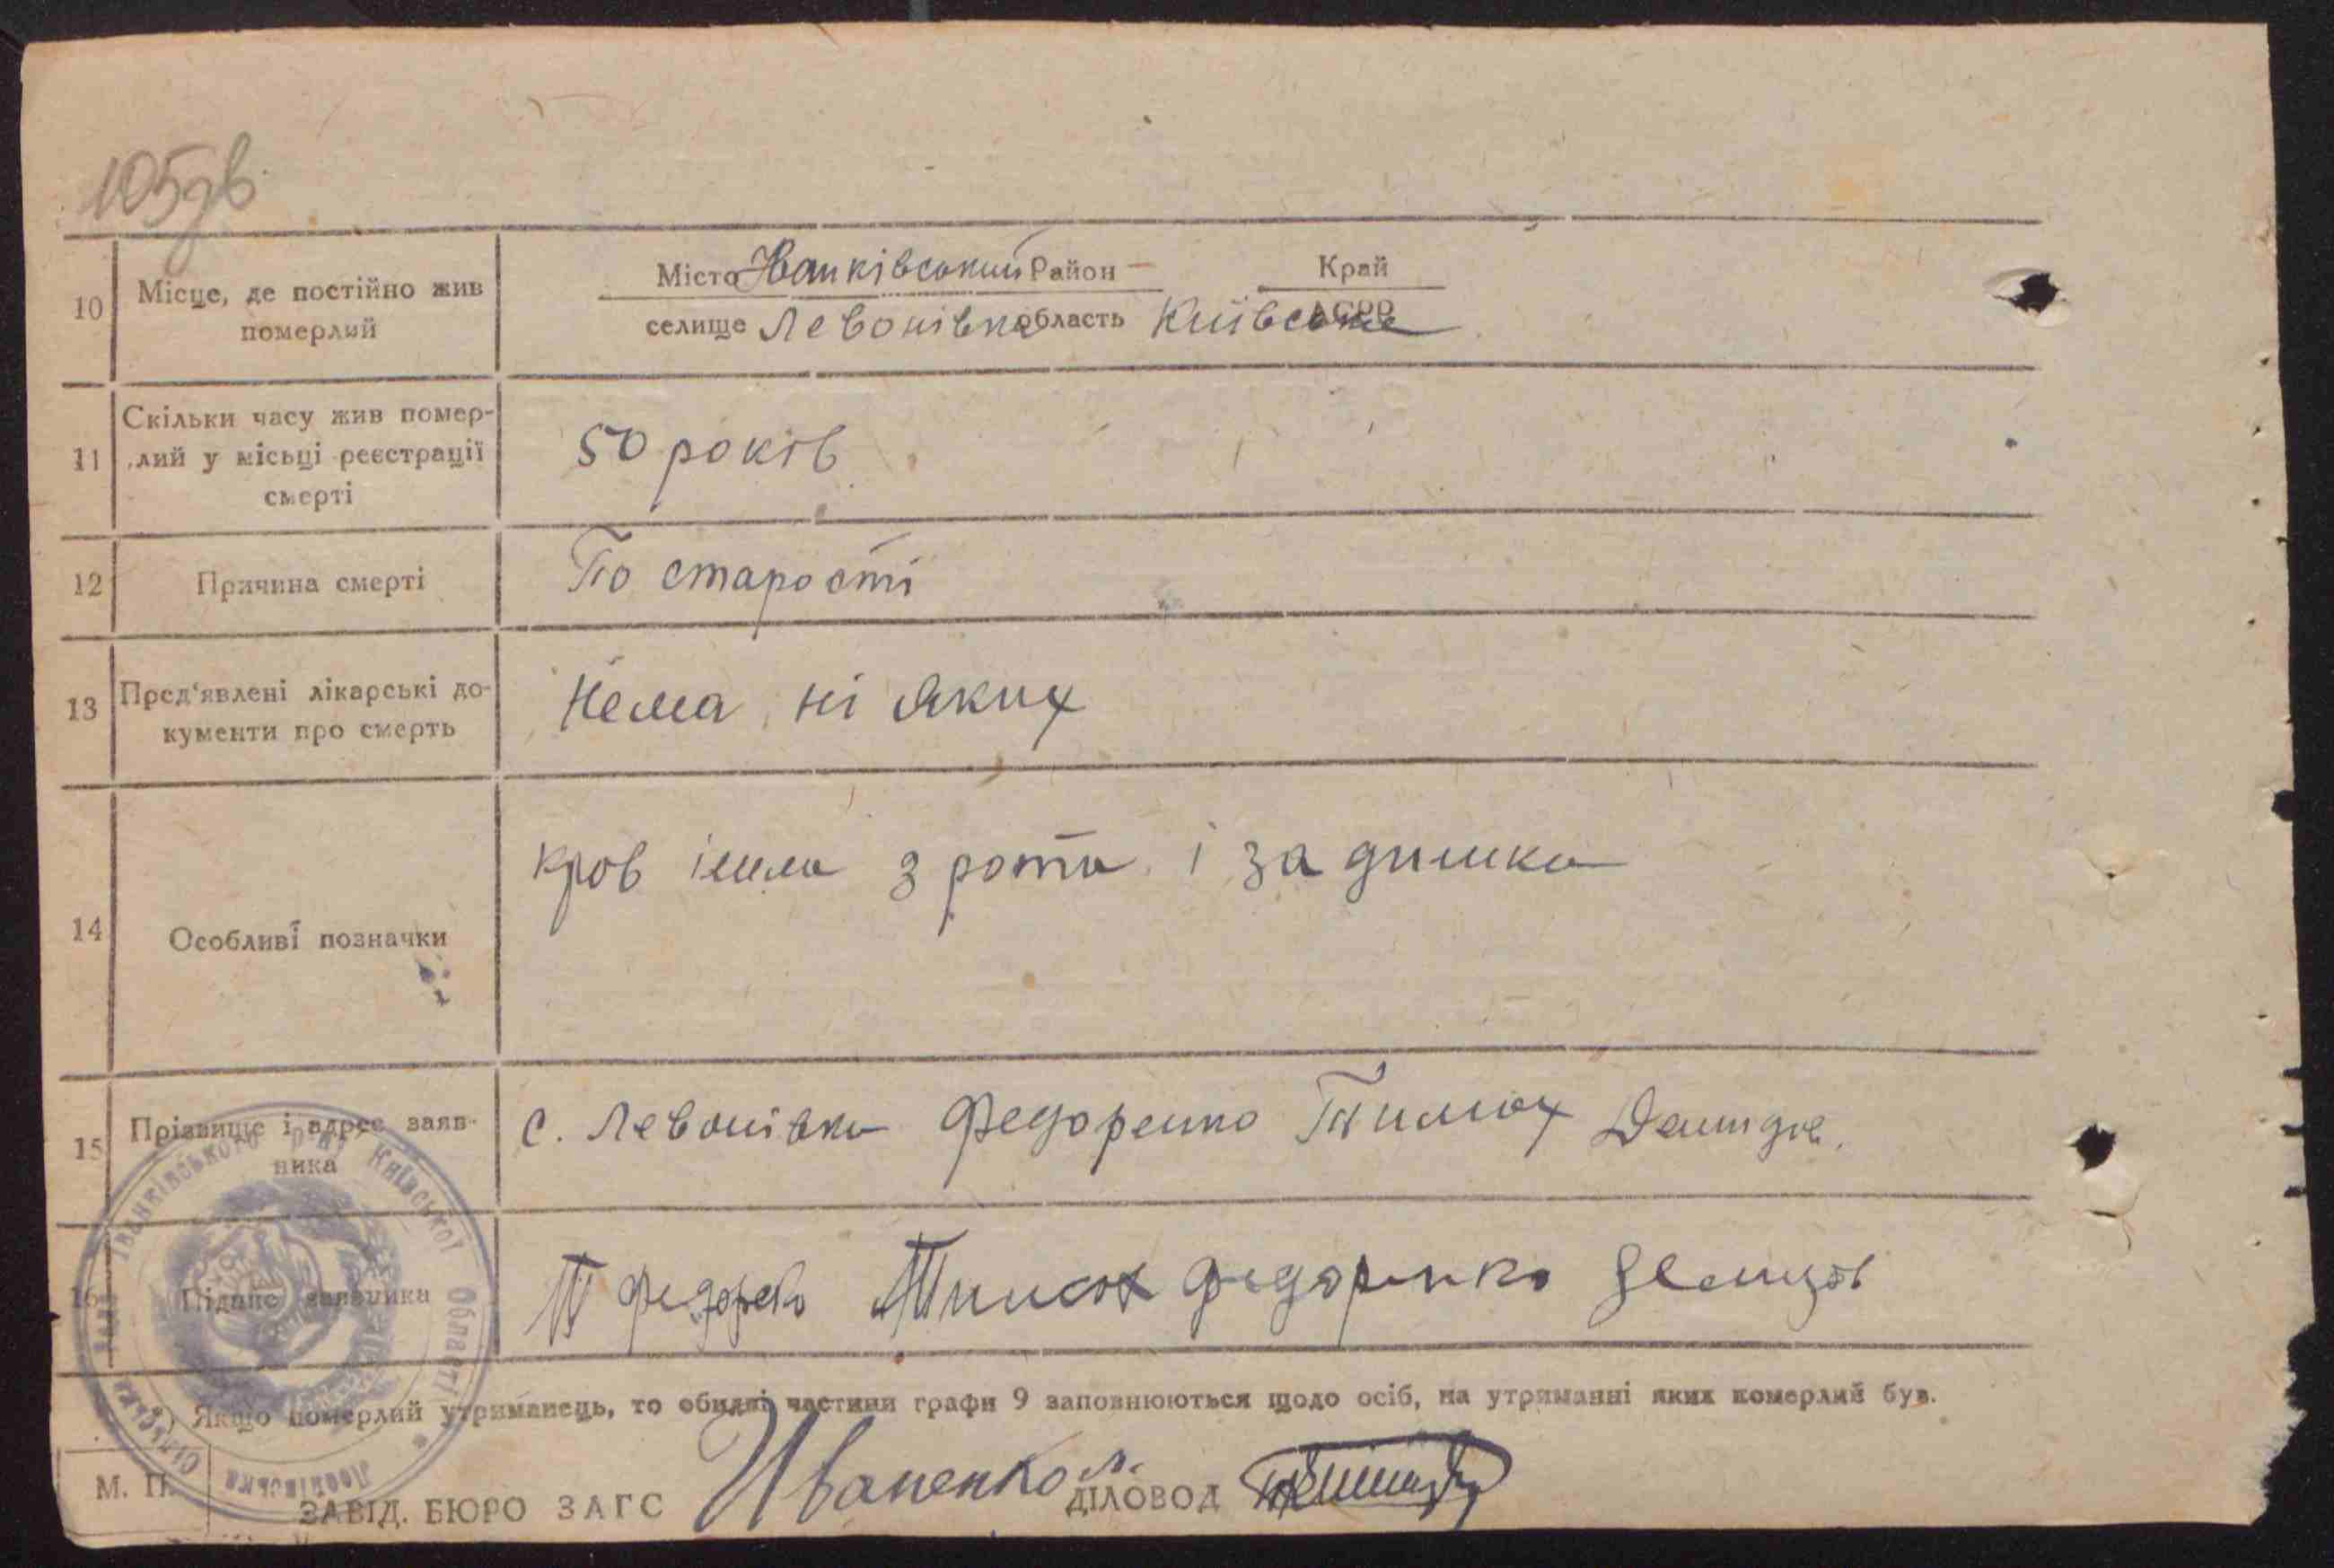 105дв.
10 Місце, де постійно жив померлий
Місто Иванківський Район — Край
селище Левонівка область Київська АСРР
11 Скільки часу жив помер-
лий у місьці реєстрації
смерті
50 років
12 Причина смерті
По старості
13 Пред‘явлені лікарські до-
кументи про смерть
Нема ні яких
14 Особливі позначки
кров ішла з рота і за дишка
15 Прізвище і адрес заяв-
ника
с. Левонівка Федоренко Тимох Демидов.
16 Підпис заявника
Тимох Федоринко Демидов
*) Якщо померлий утриманець, то обидві частини графи 9 заповнюються щодо осіб, на утриманні яких померлий був.
М. П.
ЗАВІД. БЮРО ЗАГС Иваненко ДІЛОВОД
Іванківського р-ну Київської Області
сільська рада